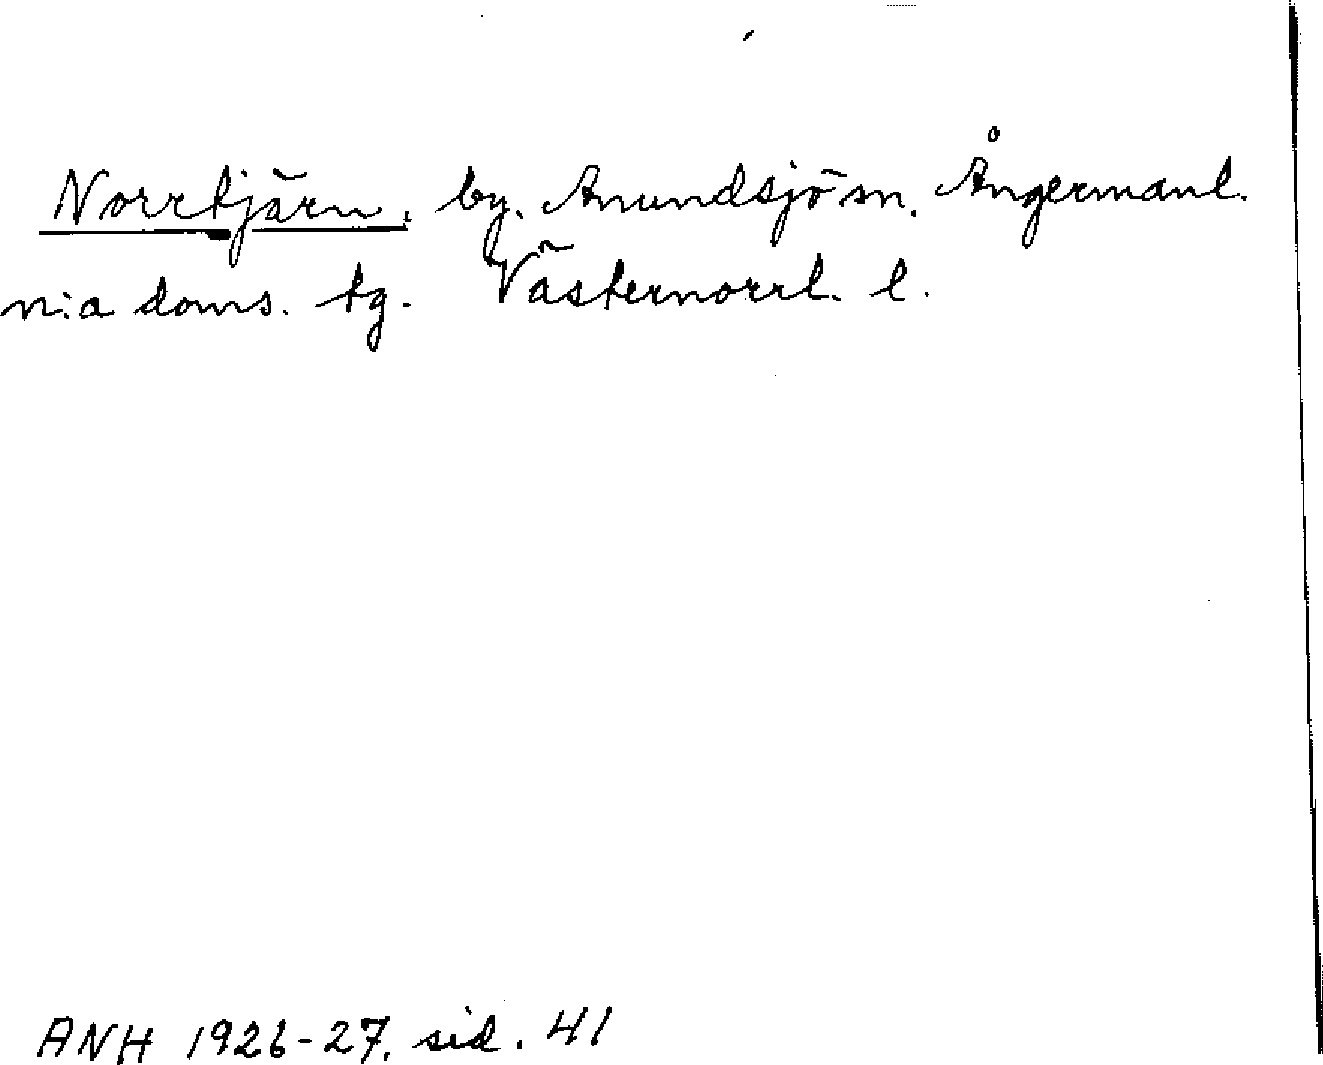 Norrtjärn. by. Anundsjö sn. Ångermanl.
n:a doms. tg. Västernorrl. l.
ANH 1926-27. sid. 41